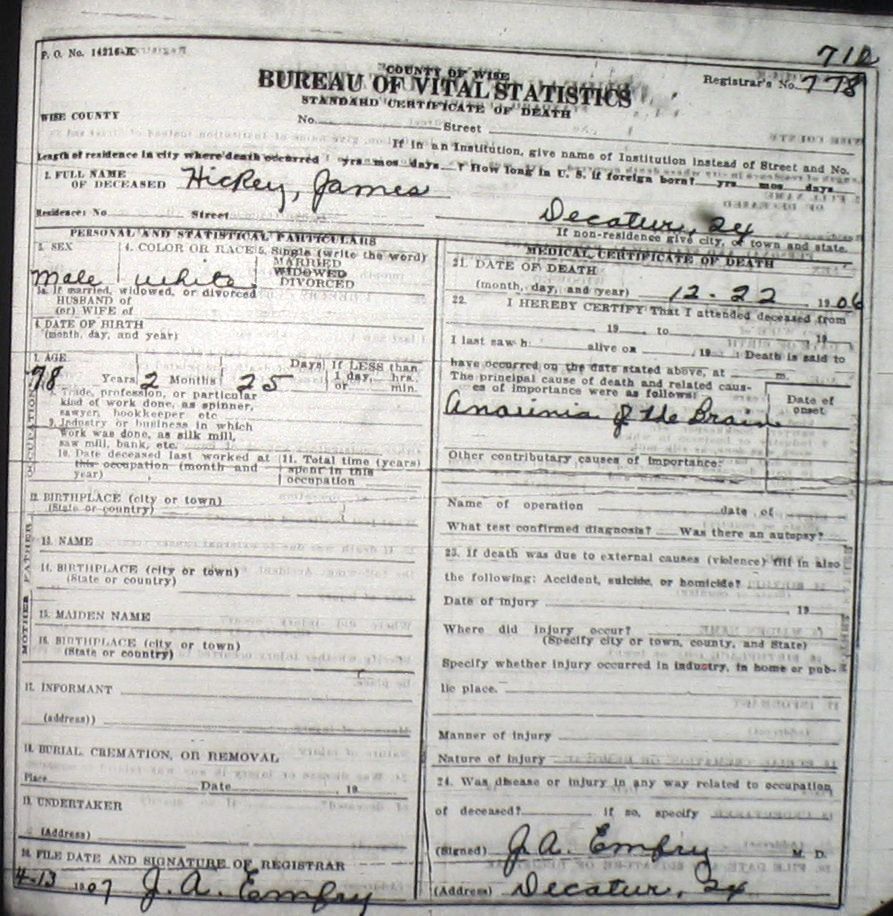 P. O. No. 14216-K
710
COUNTY OF WISE
Registrar's No. 778
BUREAU OF VITAL STATISTICS
STANDARD CERTIFICATE OF DEATH
WISE COUNTY No. Street
If in an Institution, give name of Institution instead of Street and No.
Length of residence in city where death occurred yrs mos days. ? How long in U. S. if foreign born? yrs mos days
1. FULL NAME OF DECEASED Hickey, James
Residence: No Street Decatur, Tx
If non-residence give city, or town and state.
PERSONAL AND STATISTICAL PARTICULARS
3. SEX Male
4. COLOR OR RACE white
5. Single (write the word)
MARRIED
WIDOWED
DIVORCED
5a. If married, widowed, or divorced
HUSBAND of
(or) WIFE of
6. DATE OF BIRTH
(month, day, and year)
7. AGE
78 Years 2 Months 25 Days
If LESS than
1 day, hrs.
or min.
OCCUPATION
8. Trade, profession, or particular
kind of work done, as spinner,
sawyer, bookkeeper etc
9. Industry or business in which
Work was done, as silk mill,
saw mill, bank, etc.
10. Date deceased last worked at
this occupation (month and
year)
11. Total time (years)
spent in this
occupation
12. BIRTHPLACE (city or town)
(State or country)
FATHER
13. NAME
14. BIRTHPLACE (city or town)
(State or country)
MOTHER
15. MAIDEN NAME
16. BIRTHPLACE (city or town)
(State or country)
17. INFORMANT
(address))
18. BURIAL, CREMATION, OR REMOVAL
Place Date , 19
19. UNDERTAKER
(Address)
20. FILE DATE AND SIGNATURE OF REGISTRAR
4-13 1907 J. A. Embry
MEDICAL CERTIFICATE OF DEATH
21. DATE OF DEATH
(month, day, and year) 12-22 1906
22. I HEREBY CERTIFY That I attended deceased from
, 19 , to , 19
I last saw h alive on , 19 ; Death is said to
have occurred on the date stated above, at m.
The principal cause of death and related caus-
es of importance were as follows:
Date of
onset
Anaemia of the Brain
Other contributary causes of importance:
Name of operation date of
What test confirmed diagnosis? Was there an autopsy?
23. If death was due to external causes (violence) fill in also
the following: Accident, suicide, or homicide?
Date of injury 19
Where did injury occur?
(Specify city or town, county, and State)
Specify whether injury occurred in industry, in home or pub-
lic place.
Manner of injury
Nature of injury
24. Was disease or injury in any way related to occupation
of deceased? if so, specify
(Signed) J. A. Embry M. D.
(Address) Decatur, Tx